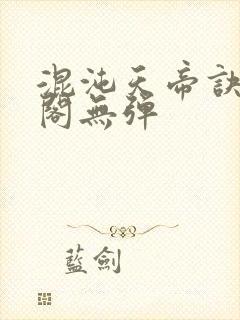 混沌天帝訣
閣無彈
藍劍